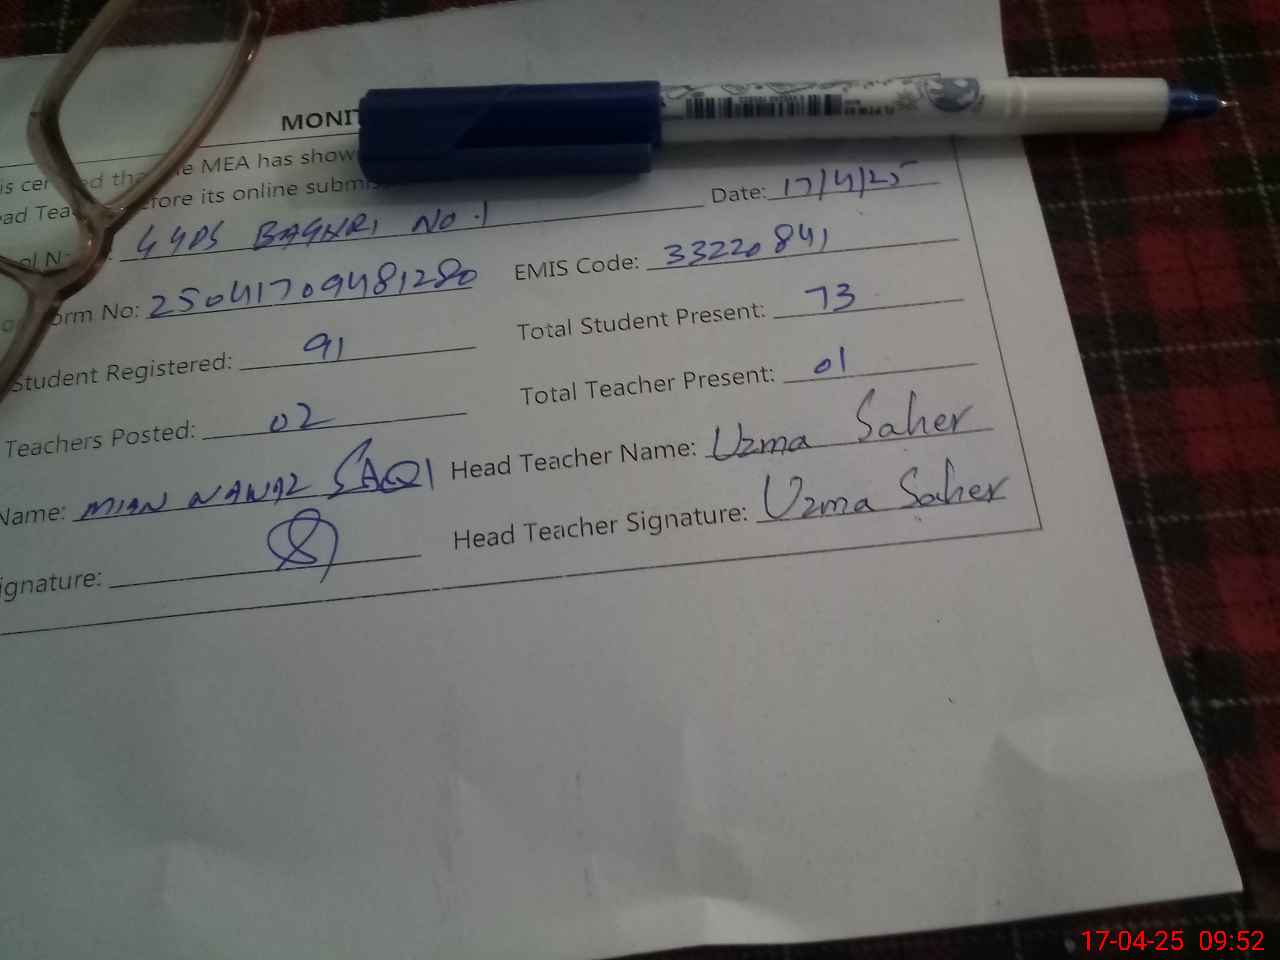 MONIT
is cer ed tha e MEA has show
ead Tea efore its online submis
ol N : GGPS BAGHRI No.1 Date: 17/4/25
orm No: 25041709481280 EMIS Code: 33220841
Student Registered: 91 Total Student Present: 73
Teachers Posted: 02 Total Teacher Present: 01
Name: MIAN NAWAZ SAQI Head Teacher Name: Uzma Saher
ignature: Head Teacher Signature: Uzma Saher
17-04-25 09:52